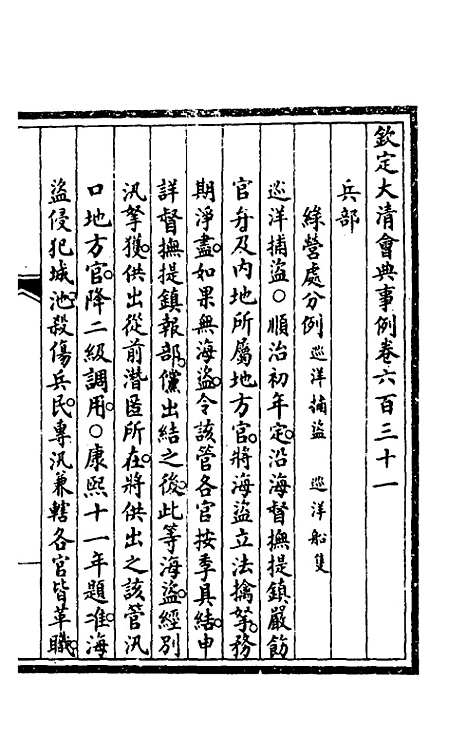 欽定大清會典事例卷六百三十一
兵部
綠營處分例 巡洋捕盜 巡洋船隻
巡洋捕盜○順治初年定。沿海督撫提鎮嚴飭
官弁及內地所屬地方官。將海盜立法擒拏。務
期淨盡。如果無海盜。令該管各官按季具結。申
詳督撫提鎮報部。儻出結之後。此等海盜。經別
汛拏獲。供出從前潛匿所在。將供出之該管汛
口地方官。降二級調用。○康熙十一年題准。海
盜侵犯城池。殺傷兵民。專汛兼轄各官皆革職。